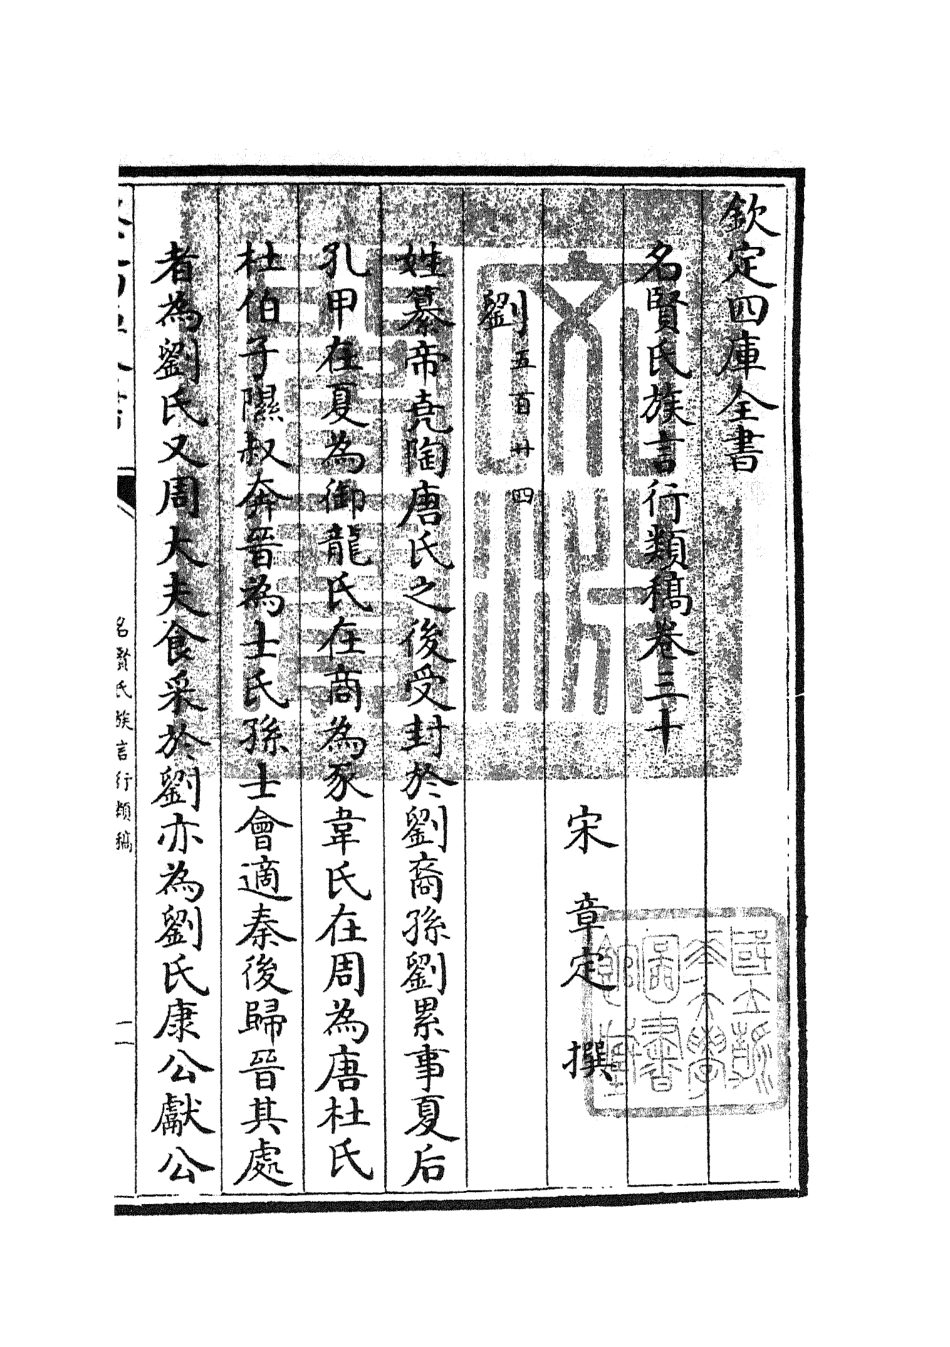 欽定四庫全書
名賢氏族言行類稿卷三十
宋 章定 撰
劉 五百廿四
姓纂帝堯陶唐氏之後受封於劉裔孫劉累事夏后
孔甲在夏為御龍氏在商為豕韋氏在周為唐杜氏
杜伯子隰叔奔晉為士氏孫士會適秦後歸晉其處
者為劉氏又周大夫食采於劉亦為劉氏康公獻公
名賢氏族言行類稿